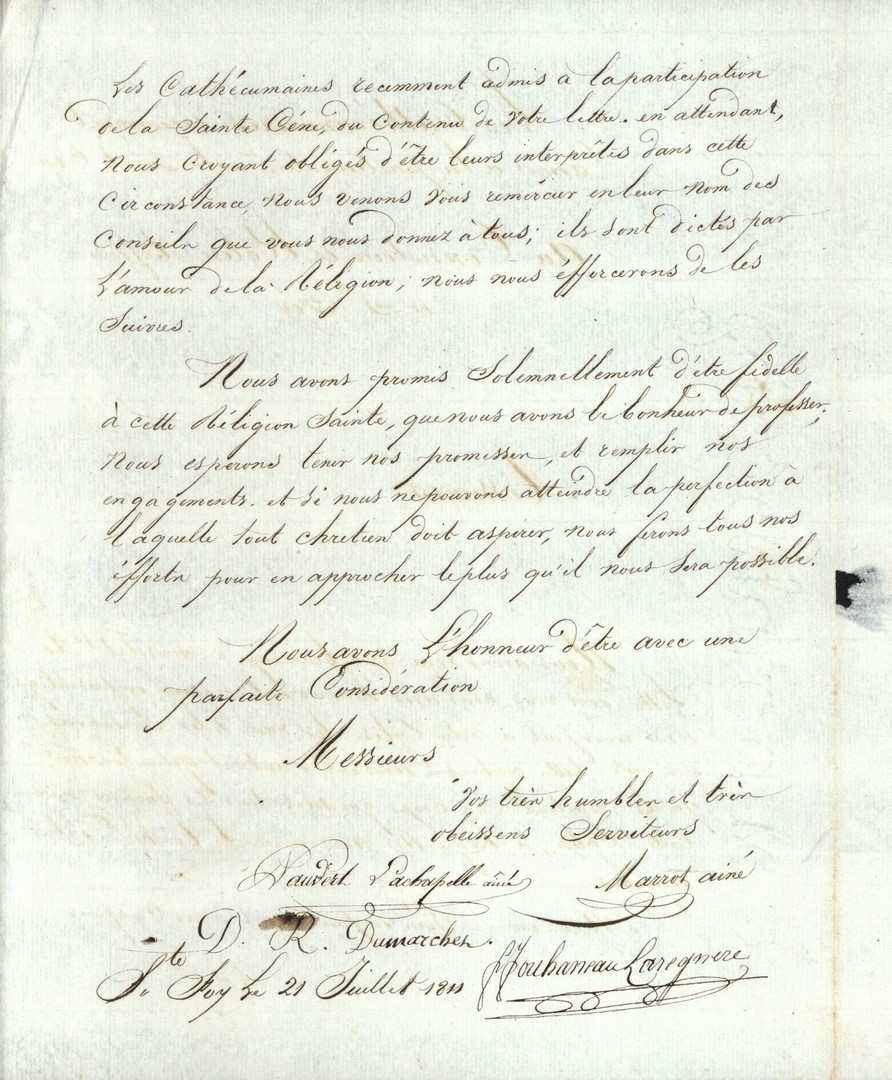 Les Cathécumaines recemment admis à la participation
de la Sainte Céne, du Contenu de Votre lettre. en attendant,
Nous croyant obligés d'être leurs interprêtes dans cette
Circonstance, nous venons vous remércier en leur nom des
Conseils que vous nous donnez à tous; ils sont dictés par
L'amour de la Réligion; nous nous éfforcerons de les
Suivres.
Nous avons promis Solemnellement d'être fidelle
à cette Réligion Sainte, que nous avons le bonheur de professer;
Nous esperons tenir nos promesses, et remplir nos
engagements. et Si nous ne pouvons atteindre la perfection à
laquelle tout chretien doit aspirer, nous ferons tous nos
éfforts pour en approcher le plus qu'il nous Sera possible.
Nous avons L'honneur d'être avec une
parfaite Considération
Messieurs
Vos très humbles et très
obeissens Serviteurs
Lachapelle ainé Marrot ainé
D. R. Dumarches.
Jouhanneau Laregnere
Ste Foy Le 21 Juillet 1811